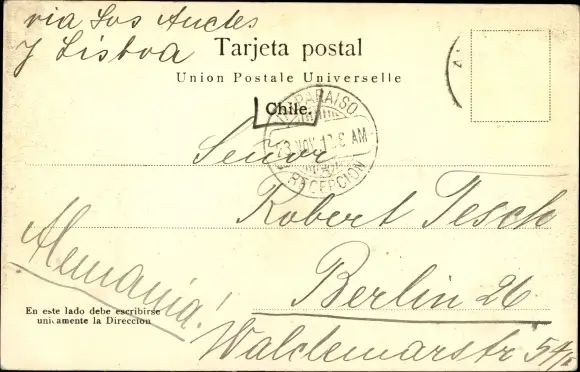 via Los Andes
y Lisboa
Tarjeta postal
Union Postale Universelle
Chile.
VALPARAISO
23 NOV 12 8 AM
RECEPCION
Señor
Robert Tesch
Alemania!
Berlin 26
En este lado debe escribirse
unicamente la Direccion
Waldemarstr 54/II